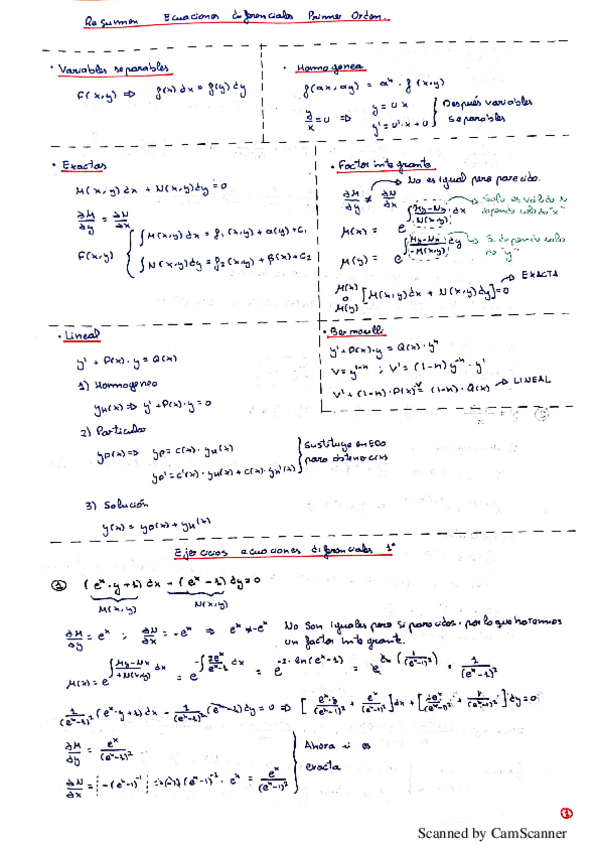 Resumen Ecuaciones diferenciales Primer Orden.
· Variables separables
F(x,y) => g(x) dx = g(y) dy
· Homogenea
g(ax, ay) = aⁿ · g(x,y)
y/x = u => y = u·x
y' = u'·x + u
Después variables
separables
· Exactas
M(x,y) dx + N(x,y) dy = 0
∂M/∂y = ∂N/∂x
F(x,y) { ∫M(x,y) dx = g₁(x,y) + α(y) + C₁
∫N(x,y) dy = g₂(x,y) + β(x) + C₂
· Factor integrante
No es igual pero parecido.
∂M/∂y ≠ ∂N/∂x
μ(x) = e^∫ (My-Nx)/N(x,y) dx
μ(y) = e^∫ (My-Nx)/-M(x,y) dy
Si depende solo
de "y"
μ(x) o μ(y) [M(x,y) dx + N(x,y) dy] = 0 → EXACTA
· Lineal
y' + P(x)·y = Q(x)
1) Homogeneo
yH(x) => y' + P(x)·y = 0
2) Particular
yp(x) => yp = C(x)·yH(x)
yp' = C'(x)·yH(x) + C(x)·yH'(x)
Sustituye en EDO
para obtener C(x)
3) Solución
y(x) = yp(x) + yH(x)
· Bernoulli
y' + P(x)·y = Q(x)·yⁿ
V = y¹⁻ⁿ ; V' = (1-n) y⁻ⁿ · y'
V' + (1-n)·P(x)·V = (1-n)·Q(x) → LINEAL
Ejercicios ecuaciones diferenciales 1º
① (eˣ·y+1) dx - (eˣ-1) dy = 0
M(x,y) N(x,y)
∂M/∂y = eˣ ; ∂N/∂x = -eˣ => eˣ ≠ -eˣ
No son iguales pero si parecidos, por lo que haremos
un factor integrante.
μ(x) = e^∫ (My-Nx)/+N(x,y) dx = e^-∫ 2eˣ/(eˣ-1) dx = e^(-2·ln(eˣ-1)) = e^ln(1/(eˣ-1)²) = 1/(eˣ-1)²
∂M/∂y = eˣ/(eˣ-1)²
Ahora si es
exacta
Scanned by CamScanner